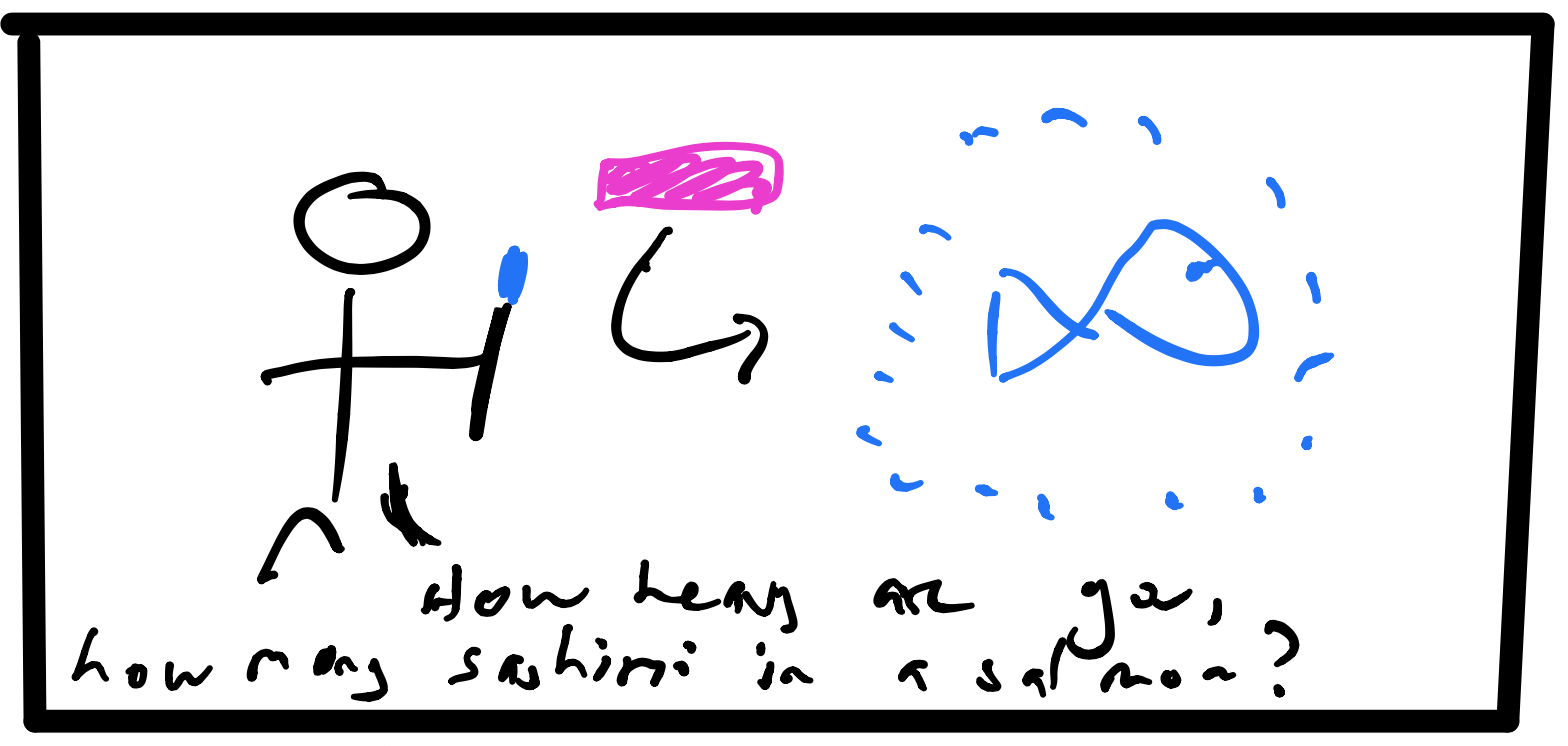 How heavy are you,
how many sashimi in a salmon?